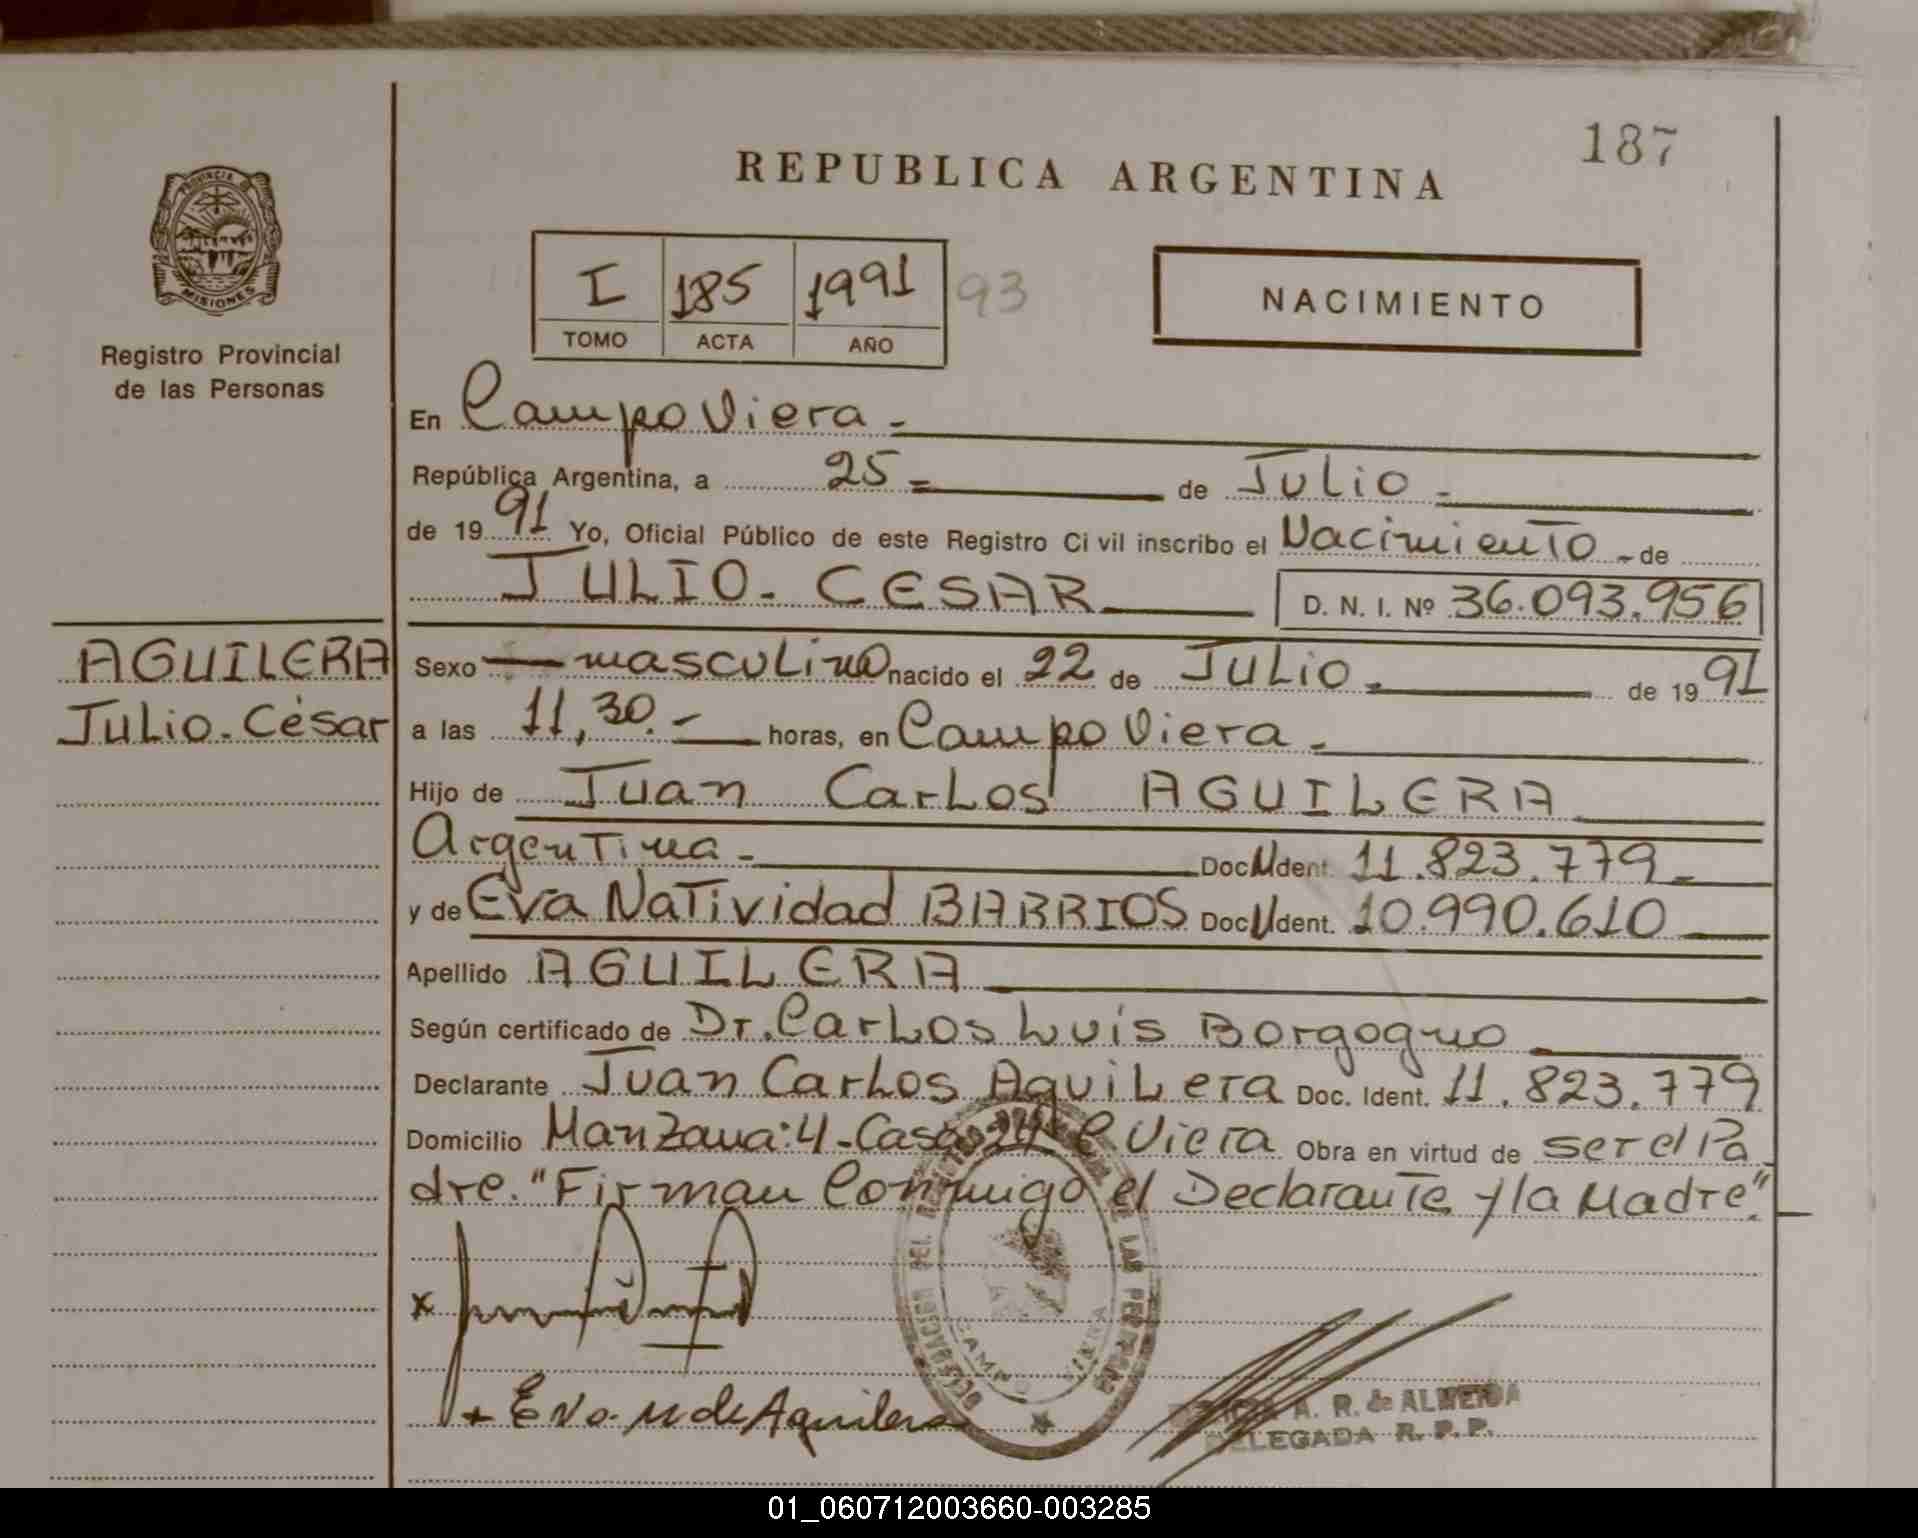 187
REPUBLICA ARGENTINA
PROVINCIA DE
MISIONES
Registro Provincial
de las Personas
I 185 1991 93
TOMO ACTA AÑO
NACIMIENTO
En Campo Viera.-
República Argentina, a 25 = de Julio.-
de 1991 Yo, Oficial Público de este Registro Civil inscribo el Nacimiento - de
JULIO - CESAR D. N. I. Nº 36.093.956
AGUILERA
Julio - César
Sexo masculino nacido el 22 de Julio.- de 1991
a las 11,30.- horas, en Campo Viera.-
Hijo de Juan Carlos AGUILERA
Argentina.- Doc. Ident. 11.823.779.-
y de Eva Natividad BARRIOS Doc. Ident. 10.990.610
Apellido AGUILERA
Según certificado de Dr. Carlos Luis Borgogno
Declarante Juan Carlos Aguilera Doc. Ident. 11.823.779
Domicilio Manzana: 4 - Casa 24 C Viera Obra en virtud de ser el Pa
dre. "Firman Conmigo el Declarante y la Madre".
x
+ Eva N de Aguilera
DELEGACION DEL REGISTRO DE LAS PERSONAS
CAMPO VIERA
A. R. de ALMEIDA
DELEGADA R. P. P.
01_060712003660-003285